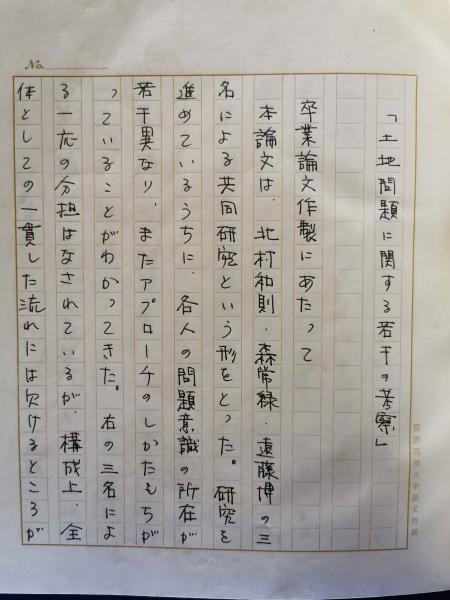 No.
「土地問題に関する若干の考察」
卒業論文作製にあたって
本論文は、北村和則・森常緑・遠藤博の三
名による共同研究という形をとった。研究を
進めているうちに、各人の問題意識の所在が
若干異なり、またアプローチのしかたもちが
っていることがわかってきた。右の三名によ
る一応の分担はなされているが、構成上、全
体としての一貫した流れには欠けるところが
慶應義塾大学論文用紙